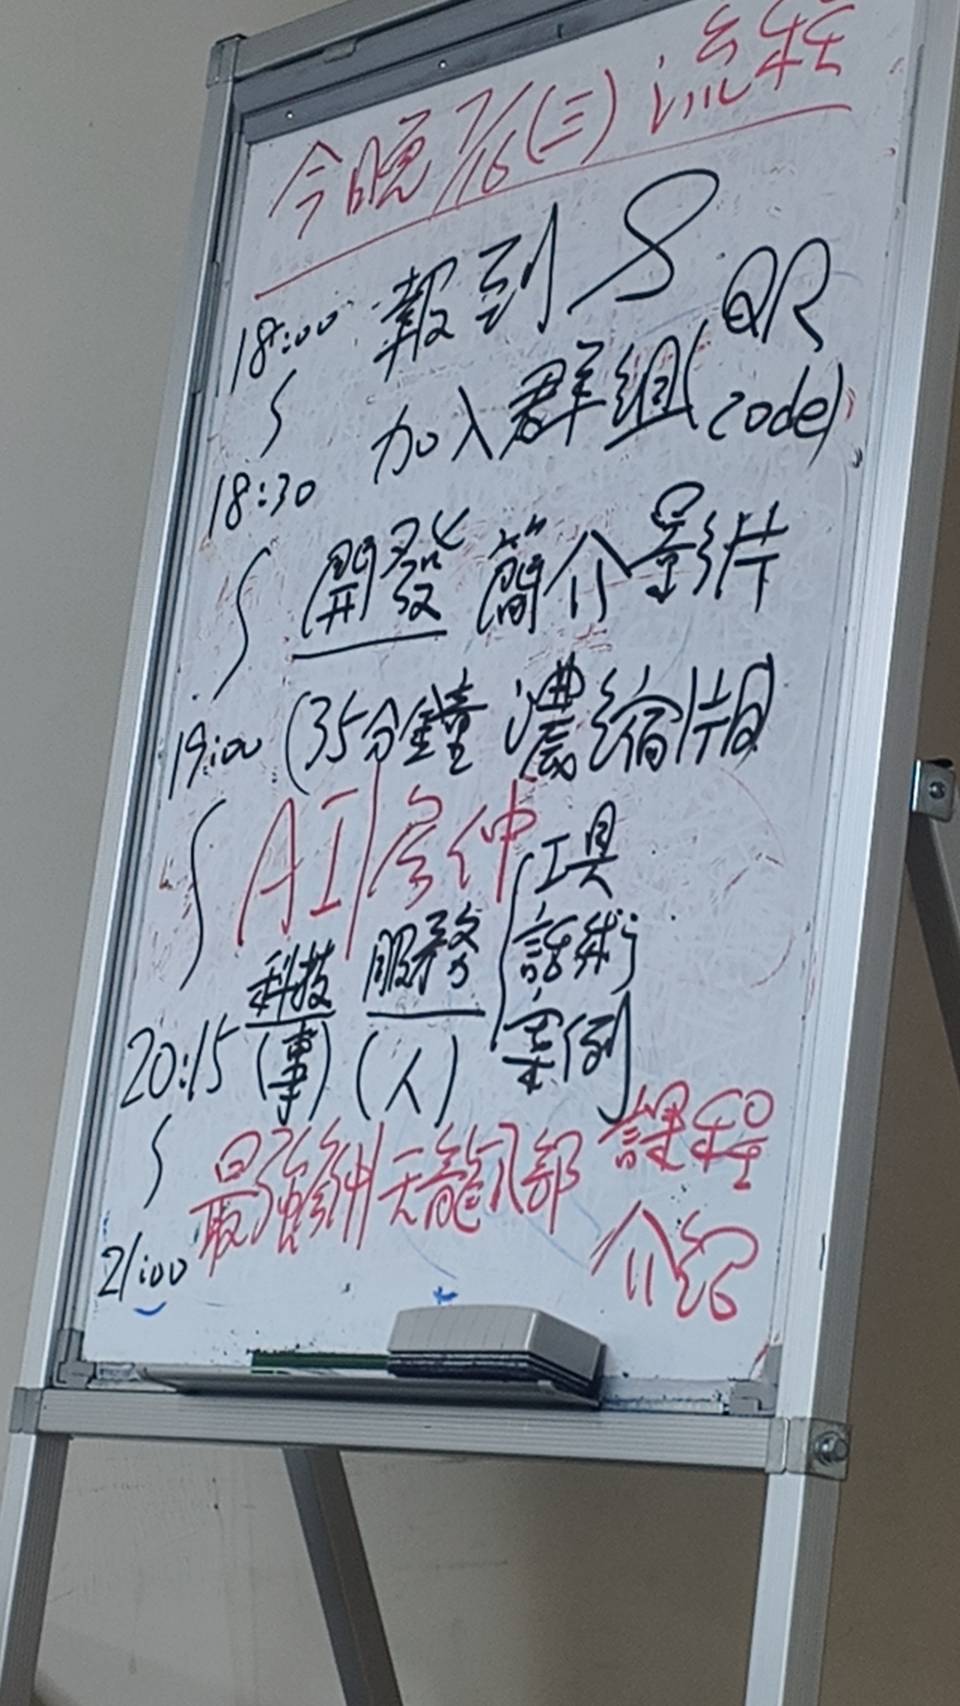 今晚7/16(三)流程
18:00 報到 &
∫ 加入群組(QR code)
18:30
∫ 開發 簡介影片
19:00 (35分鐘 濃縮版)
∫ AI房仲 工具
科技 服務 話術
20:15 (事) (人) 案例
∫ 最強房仲天龍八部 課程
21:00 介紹